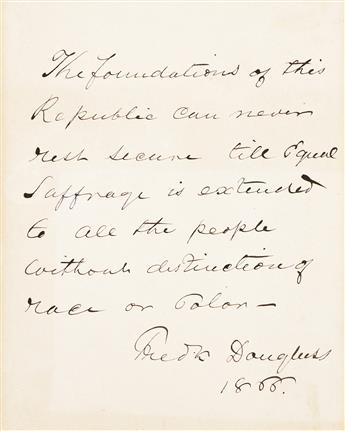 The foundations of this
Republic can never
rest secure till Equal
Suffrage is extended
to all the people
without distinction of
race or Color—
Fredk Douglass
1866.